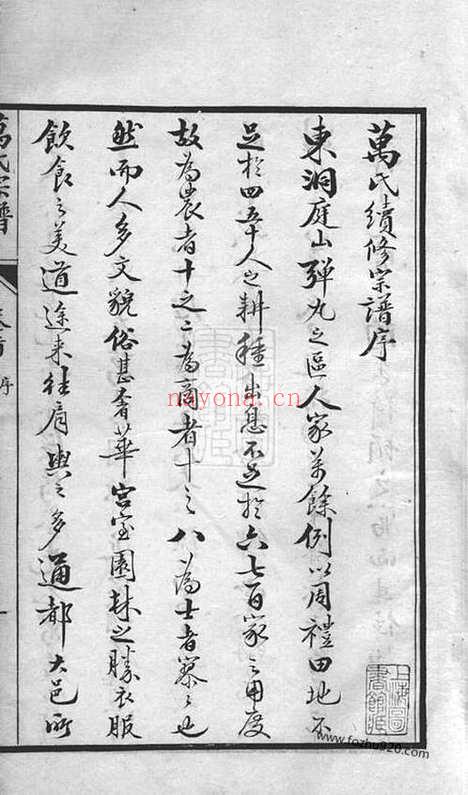 萬氏續修宗譜序
東洞庭山彈丸之區人家萬餘例以周禮田地不
足於四五十人之耕種出息不足於六七百家之用度
故為農者十之二為商者十之八為士者寥寥也
然而人多文貌俗甚奢華宮室園林之勝衣服
飲食之美道途來往肩輿之多通都大邑所
萬氏宗譜
卷首
序
nayona.cn
www.fozhu920.com